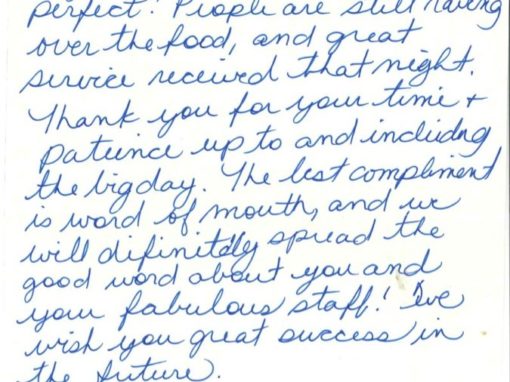 perfect! People are still raving
over the food, and great
service received that night.
Thank you for your time +
patience up to and including
the big day. The best compliment
is word of mouth, and we
will difinitely spread the
good word about you and
your fabulous staff! We
wish you great success in
the future.